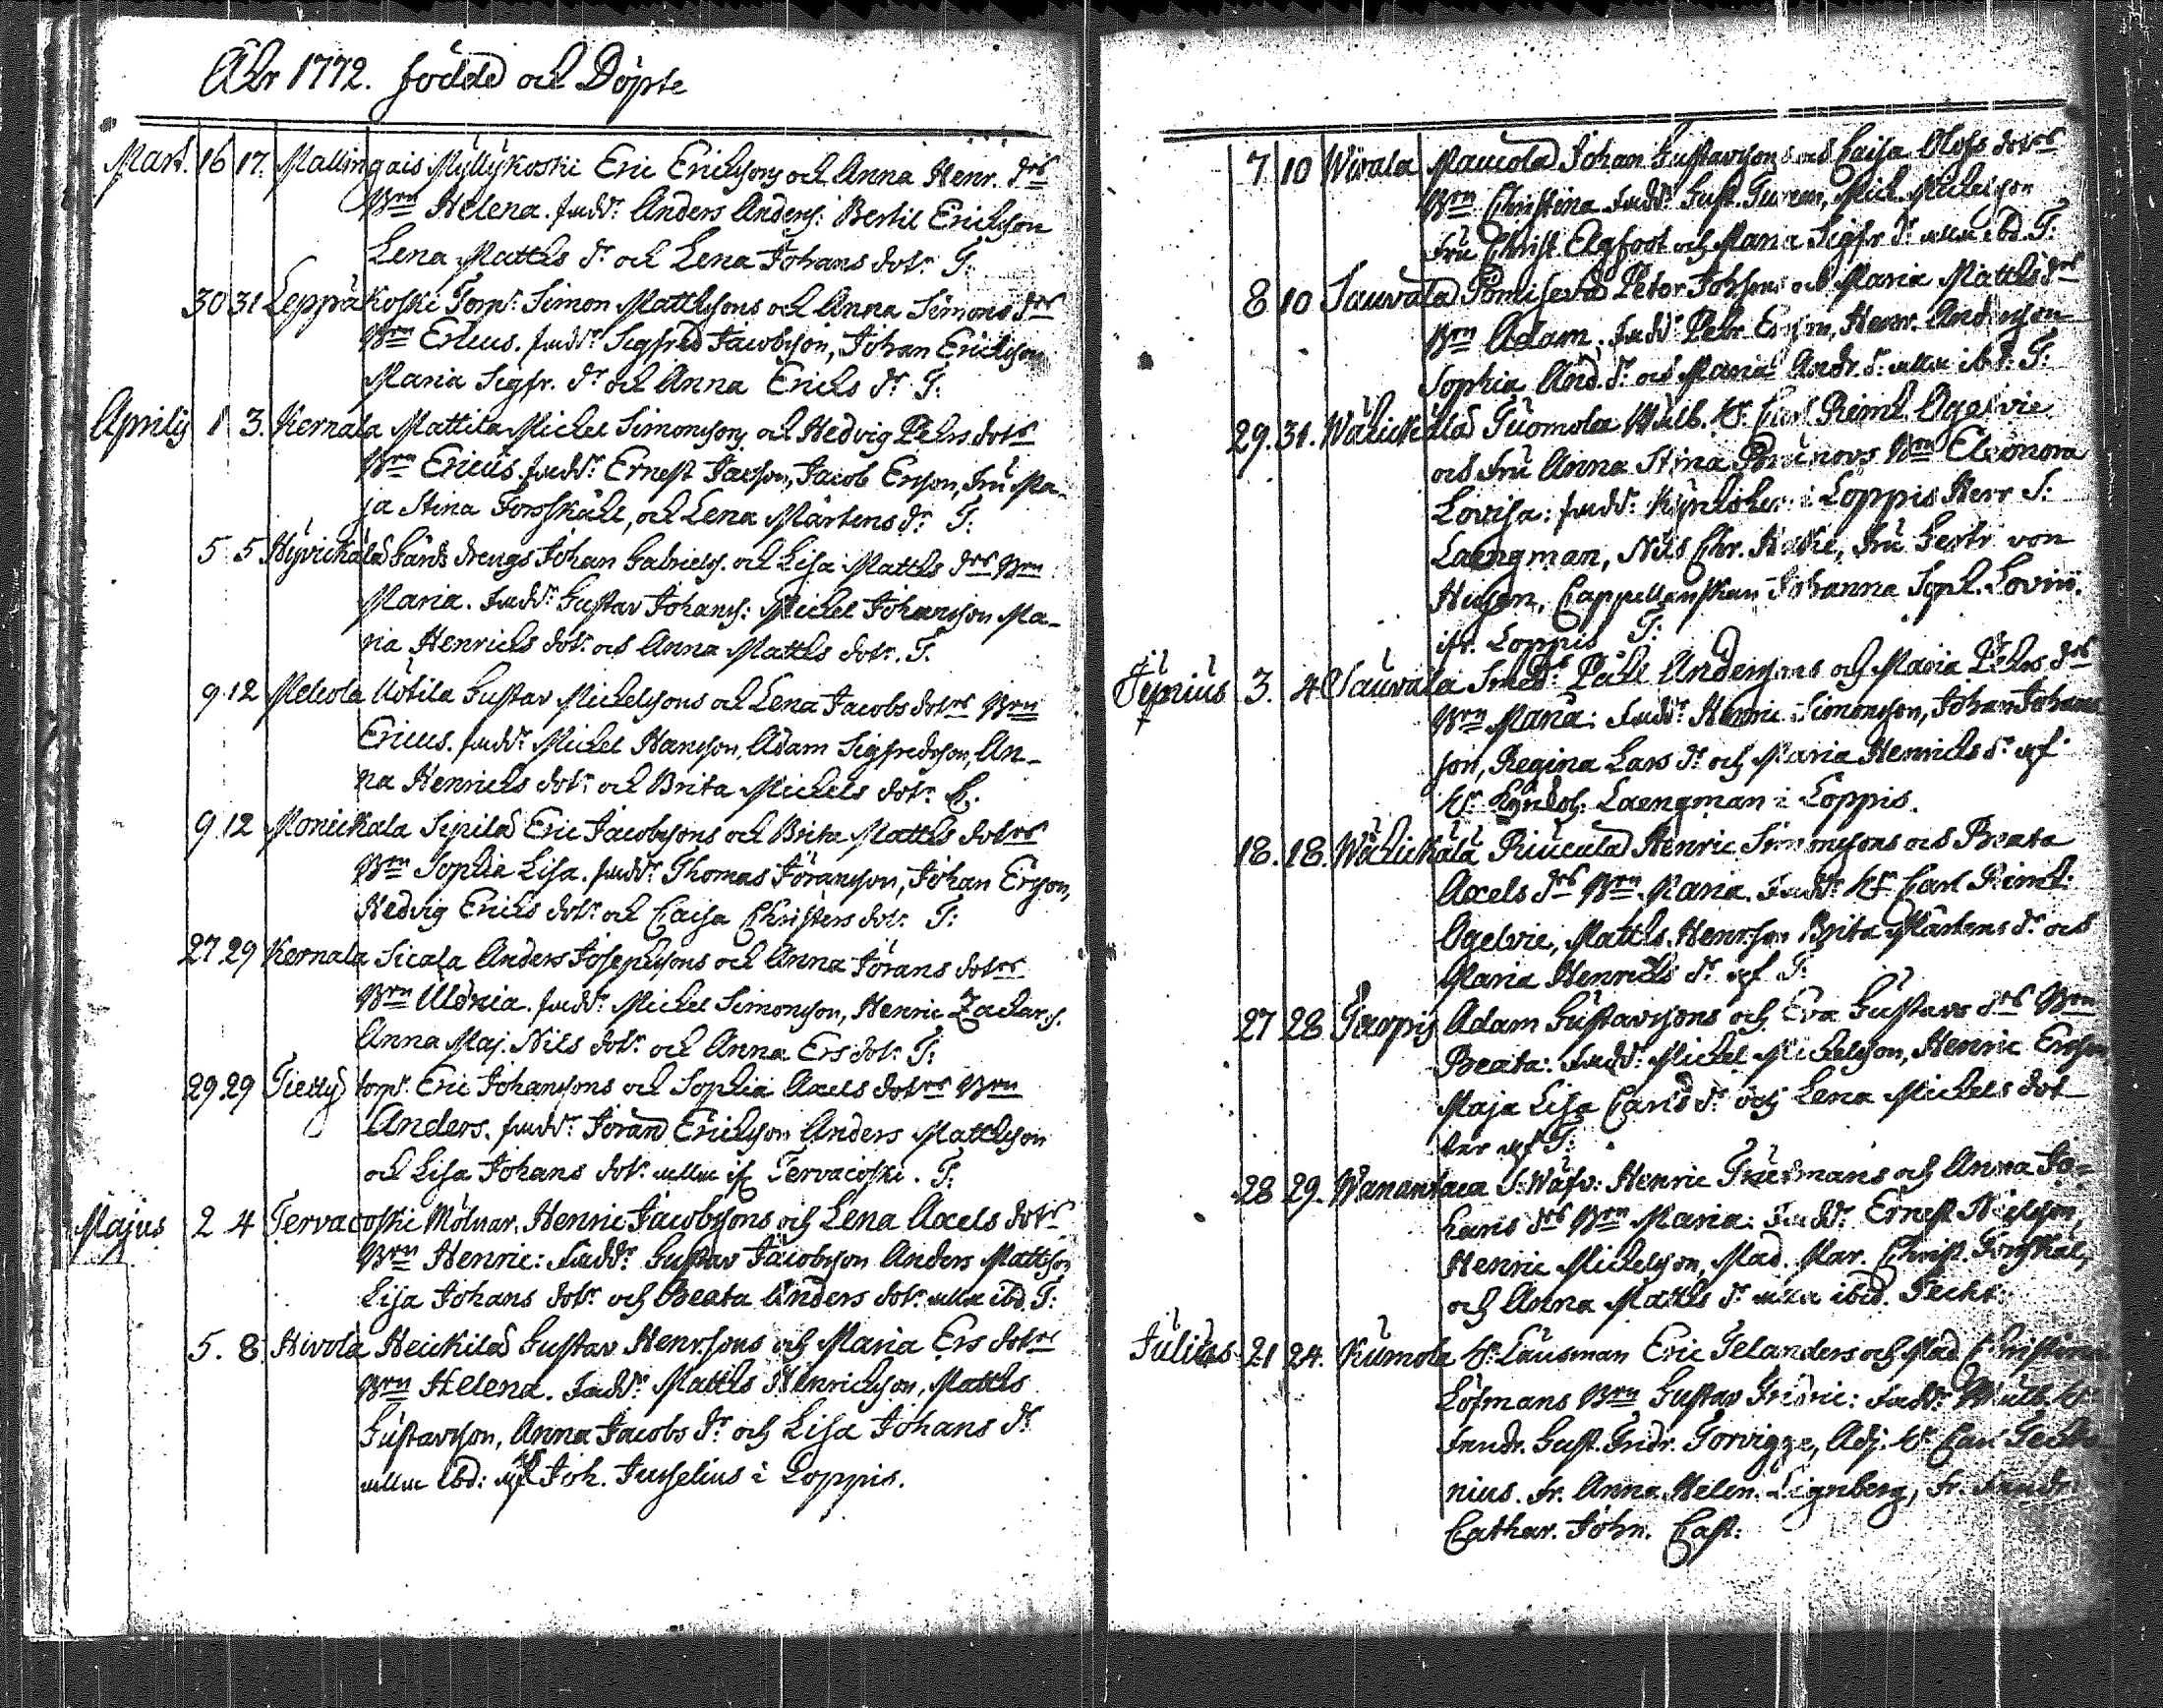 Åhr 1772. födde och Döpte
Mart. 16 17. Mallingais Myllykoski Eric Ericksons och Anna Henr. drs
Brn Helena. faddr. Anders Anders: Bertil Erickson
Lena Matths dr och Lena Johans dotr. T:
30 31 Leppäkoski Torp. Simon Matthssons och Anna Simons drs
Brn Ericus. faddr Sigfred Jacobsson, Johan Erickson
Maria Sigfr. dr och Anna Erichs dr. T:
Aprilis 1 3. Kernala Mattila Michel Simonssons och Hedvig Pehrs dotrs
Brn Ericus. faddr. Ernest Jacson, Jacob Erson, Fru Ma-
ja Stina Forsskåhl, och Lena Mårtens dr. T:
5 5 Hyvickälä Gårds drengs Johan Gabriels. och Lisa Matths drs Brn
Maria. Faddr. Gustav Johans: Michel Johansson Ma-
ria Henrichs dotr. och Anna Matths dotr. T.
9 12 Melcola Uotila Gustav Michelssons och Lena Jacobs dotrs Brn
Ericus. faddr. Michel Hansson, Adam Sigfredsson, An-
na Henrichs dotr. och Brita Michels dotr. C.
9 12 Monickala Sipilä Eric Jacobssons och Brita Matths dotrs
Brn Sophia Lisa. faddr. Thomas Jöransson, Johan Erson,
Hedvig Erichs dotr. och Caisa Christers dotr. T:
27 29 Kernala Sicala Anders Josephssons och Anna Jörans dotrs
Brn Ulrica. faddr. Michel Simonsson, Henric Zachar. s.
Anna Maj. Nils dotr. och Anna Ers dotr. T:
29 29 Tietty torp. Eric Johanssons och Sophia Axels dotrs Brn
Anders. faddr. Jöran Erickson Anders Matthsson
och Lisa Johans dotr. Tervacoski. T:
Majus 2 4 Tervacoski Mölnar. Henric Jacobssons och Lena Axels dotrs
Brn Henric: Faddr. Gustav Jacobsson Anders Mattsson
Lisa Johans dotr. och Beata Anders dotr. alla ibd. T:
5. 8 Hivola Heickilä Gustav Henrssons och Maria Ers dotrs
Brn Helena. Faddr. Matths Henrichson, Matths
Gustavsson, Anna Jacobs dr och Lisa Johans dr
alla ibd: af Joh. Juselius i Loppis.
7 10 Wirala Maucola Johan Gustavssons och Caisa Olofs dotrs
Brn Christina Faddr. Gust. Mich. Michelson
Fru Christ. Elgfoot och Maria Sigfr dr alla ibd. T:
8 10 Sauvala Petor Johssons och Maria Matths drs
Brn Adam. Faddr. Pehr Erson, Henr. Andersson
Sophia And. dr. och Maria Andr. d. alla ibd. T:
29. 31. Wälickälä Tuomola Wälb. Hr. Carl Reinh. Ogelvie
och Fru Anna Stina Brunovs Brn Eleonora
Lovisa: faddr. Kyrkoher. i Loppis Herr S:
Laengman, Nils Chr. Fru Gertr. von
Cappellanskan Johanna Soph. Lovin.
ifr. Loppis T:
Junius 3. 4 Sauvala Smed. Påhl Anderssons och Maria Pehrs drs
Brn Maria: Faddr. Henric Simonsson, Johan Johans
son, Regina Lars dr. och Maria Henrichs dr. af
Hr. Kyrkoh. Laengman i Loppis.
18. 18. Wälickälä Riucula Henric Simonssons och Beata
Axels drs Brn Maria. Faddr. Hr. Carl Reinh:
Ogelvie, Matths. Henrson Brita Mårtens dr. och
Maria Henrichs dr. af T:
27 28 Adam Gustavssons och Eva Gustavs drs Brn
Beata: Faddr. Michel Michelson, Henric Erson
Maja Lisa Carls dr. och Lena Michels dot
ter af T:
28 29. Wanantaca S: Wäfv: Henric och Anna Jo-
hans drs Brn Maria: Faddr. Ernest
Henric Michelson, Mad. Mar. Christ. Forsskåhl,
och Anna Matths dr. alla ibid. Techt:
Julius 21 24. Kumola Hr. Länsman Eric Telanders och Mad. Christina
Löfmans Brn Gustav Fredric: Faddr. Wälb. Hr
Gust. Fredr. Adj. Hr Carl Techt-
nius. Fr. Anna Helen. Lignberg, Fr.
Cathar. John. Cast: